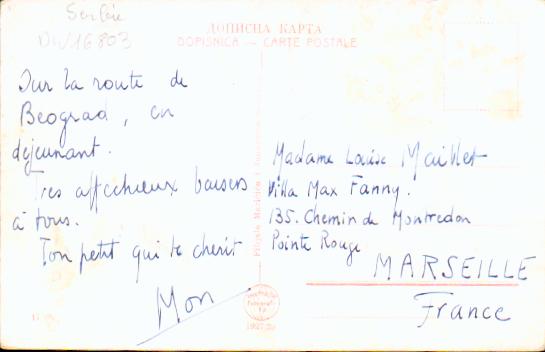 Serbie
DW16803
ДОПИСНА КАРТА
DOPISNICA — CARTE POSTALE
Sur la route de
Beograd, en
déjeunant.
Tres affectueux baisers
à tous.
Ton petit qui te cherit
Mon
Madame Louise Maillet
Villa Max Fanny.
135. Chemin de Montredon
Pointe Rouge
MARSEILLE
France